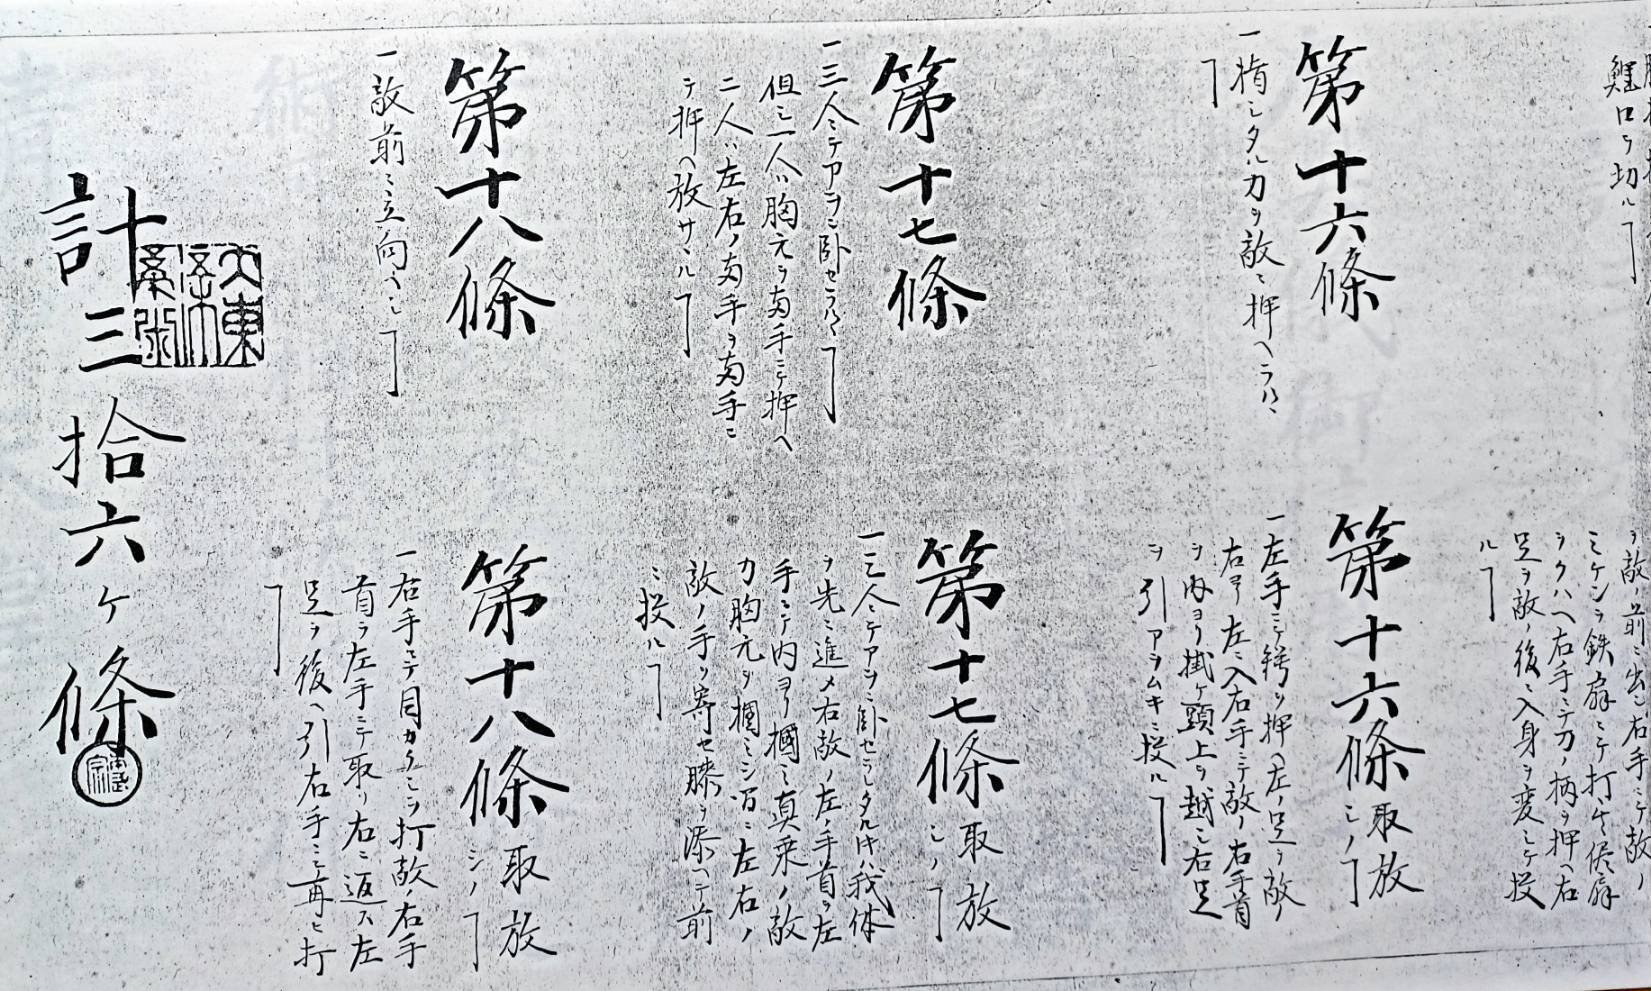 鯉口ヲ切ルヿ
第十六條
一指シタル刀ヲ敵ニ押ヘラルヽ
ヿ
第十七條
一三人ニテアヲニ臥セラルヽヿ
但シ一人ハ胸元ヲ両手ニテ押ヘ
二人ハ左右ノ両手ヲ両手ニ
テ押ヘ放サヽルヿ
第十八條
一敵前ニ立向ヘシヿ
ヲ敵ノ前ニ出シ右手ニテ敵ノ
ミケンヲ鉄扇ニテ打ケ侯扇
ヲクハヘ右手ニテ刀ノ柄ヲ押ヘ右
足ヲ敵ノ後ニ入身ヲ変シテ投
ルヿ
第十六條取放シノヿ
一左手ニテ鍔ヲ押ヘ左ノ足ヲ敵ノ
右ヨリ左ニ入右手ニテ敵ノ右手首
ヲ内ヨリ掛ケ頭上ヲ越シ右足
ヲ引アヲムキニ投ルヿ
第十七條取放シノヿ
一三人ニテアヲニ臥セラレタル時ハ我体
ヲ先ニ進メ右敵ノ左ノ手首ヲ左
手ニテ内ヨリ摑ミ真乗ノ敵
カ胸元ヲ摑ミシ習ニ左右ノ
敵ノ手ヲ寄セ膝ヲ添ヘテ前
ニ投ルヿ
第十八條取放シノヿ
一右手ニテ目カクシヲ打敵ノ右手
首ヲ左手ニテ取リ右ニ返ス左
足ヲ後ヘ引右手ニテ再ヒ打
ヿ
計三拾六ヶ條